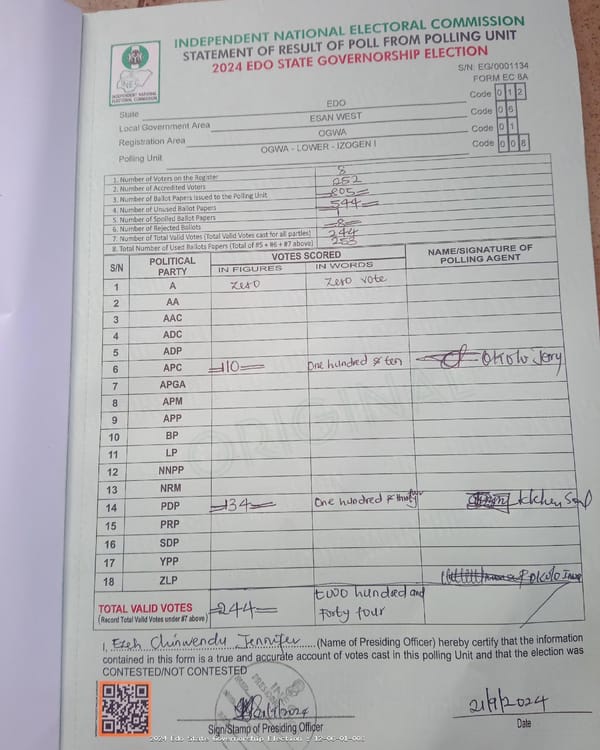 INDEPENDENT NATIONAL ELECTORAL COMMISSION
STATEMENT OF RESULT OF POLL FROM POLLING UNIT
2024 EDO STATE GOVERNORSHIP ELECTION
INEC
INDEPENDENT NATIONAL ELECTORAL COMMISSION
S/N: EG/0001134
FORM EC 8A
State EDO Code 0 1 2
Local Government Area ESAN WEST Code 0 6
Registration Area OGWA Code 0 1
Polling Unit OGWA - LOWER - IZOGEN I Code 0 0 8
1. Number of Voters on the Register
2. Number of Accredited Voters 252
3. Number of Ballot Papers Issued to the Polling Unit 805
4. Number of Unused Ballot Papers 544
5. Number of Spoiled Ballot Papers 1
6. Number of Rejected Ballots 8
7. Number of Total Valid Votes (Total Valid Votes cast for all parties) 244
8. Total Number of Used Ballots Papers (Total of #5 + #6 + #7 above) 253
S/N POLITICAL PARTY VOTES SCORED NAME/SIGNATURE OF POLLING AGENT
IN FIGURES IN WORDS
1 A Zero Zero vote
2 AA
3 AAC
4 ADC
5 ADP
6 APC 110 One hundred & ten Okolo Jerry
7 APGA
8 APM
9 APP
10 BP
11 LP
12 NNPP
13 NRM
14 PDP 134 One hundred & thirty four
15 PRP
16 SDP
17 YPP
18 ZLP
TOTAL VALID VOTES 244 two hundred and forty four
(Record Total Valid Votes under #7 above)
ORIGINAL
I, Ezeh Chinwendu Jennifer (Name of Presiding Officer) hereby certify that the information
contained in this form is a true and accurate account of votes cast in this polling Unit and that the election was
CONTESTED/NOT CONTESTED
21/9/2024 21/9/2024
Sign/Stamp of Presiding Officer Date
2024 Edo State Governorship Election - 12-06-01-008